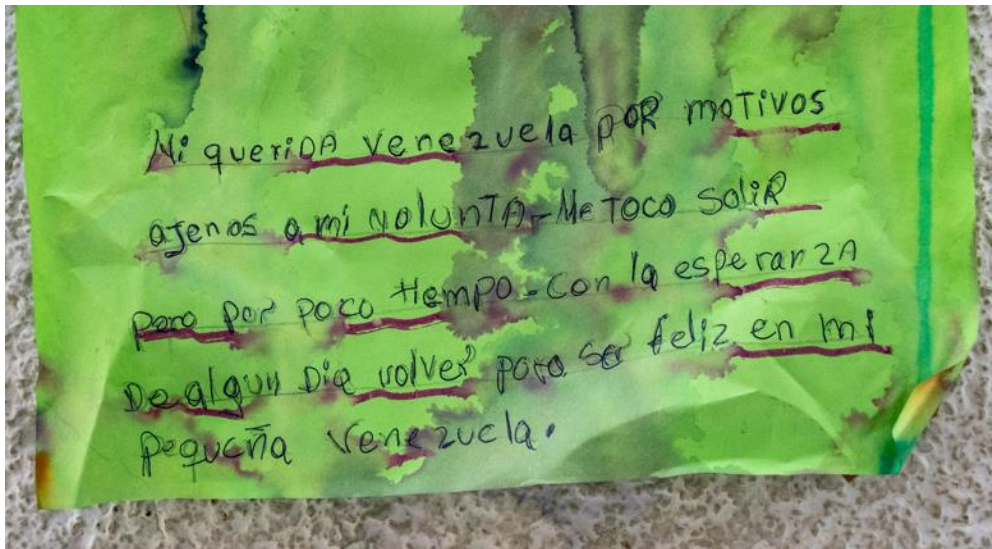 Mi queriDA Venezuela pOR moTivos
ajenos a mi volunTA-Me Toco SaliR
pero por poco tiempo-con la esperanzA
De algun Dia volver para ser feliz en mi
pequeña Venezuela.